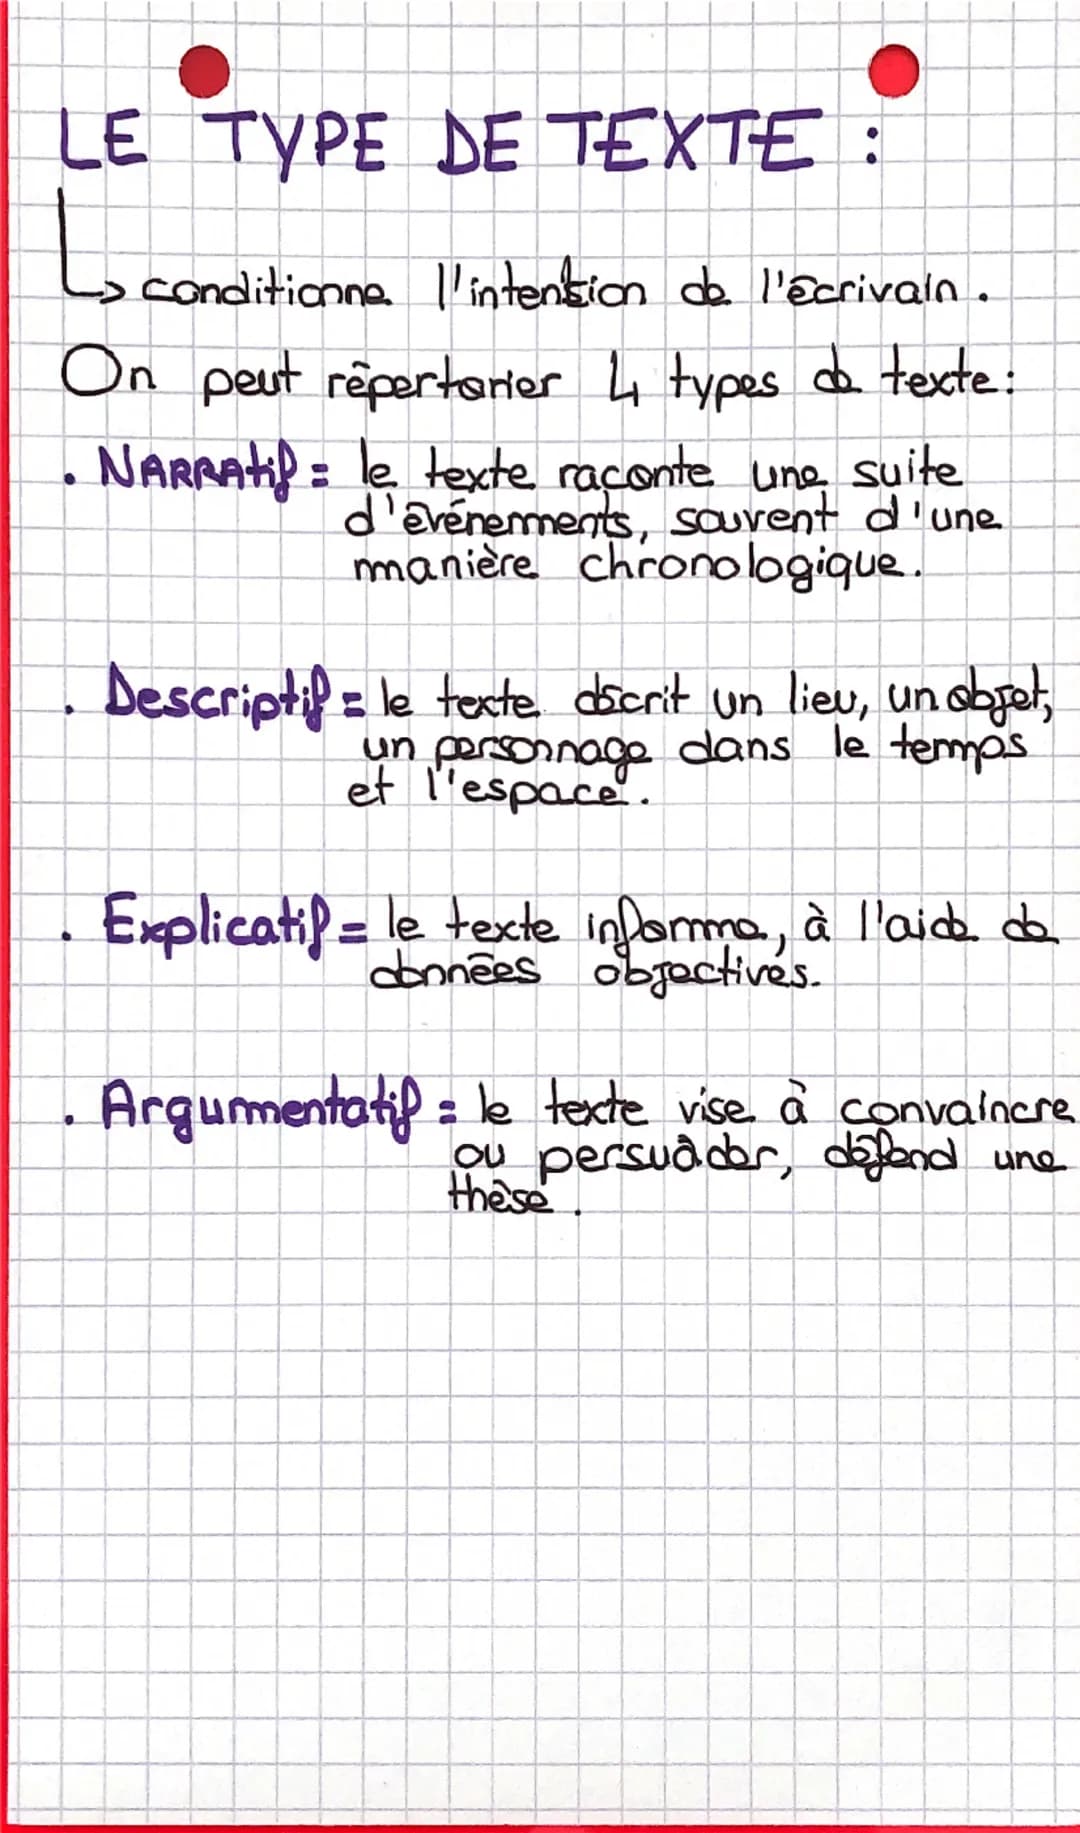 LE TYPE DE TEXTE :
↳ conditionne l'intention de l'écrivain.
On peut répertorier 4 types de texte:
. NARRAtif = le texte raconte une suite
d'événements, souvent d'une
manière chronologique.
. Descriptif = le texte décrit un lieu, un objet,
un personnage dans le temps
et l'espace.
. Explicatif = le texte informe, à l'aide de
données objectives.
. Argumentatif = le texte vise à convaincre
ou persuader, défend une
thèse.